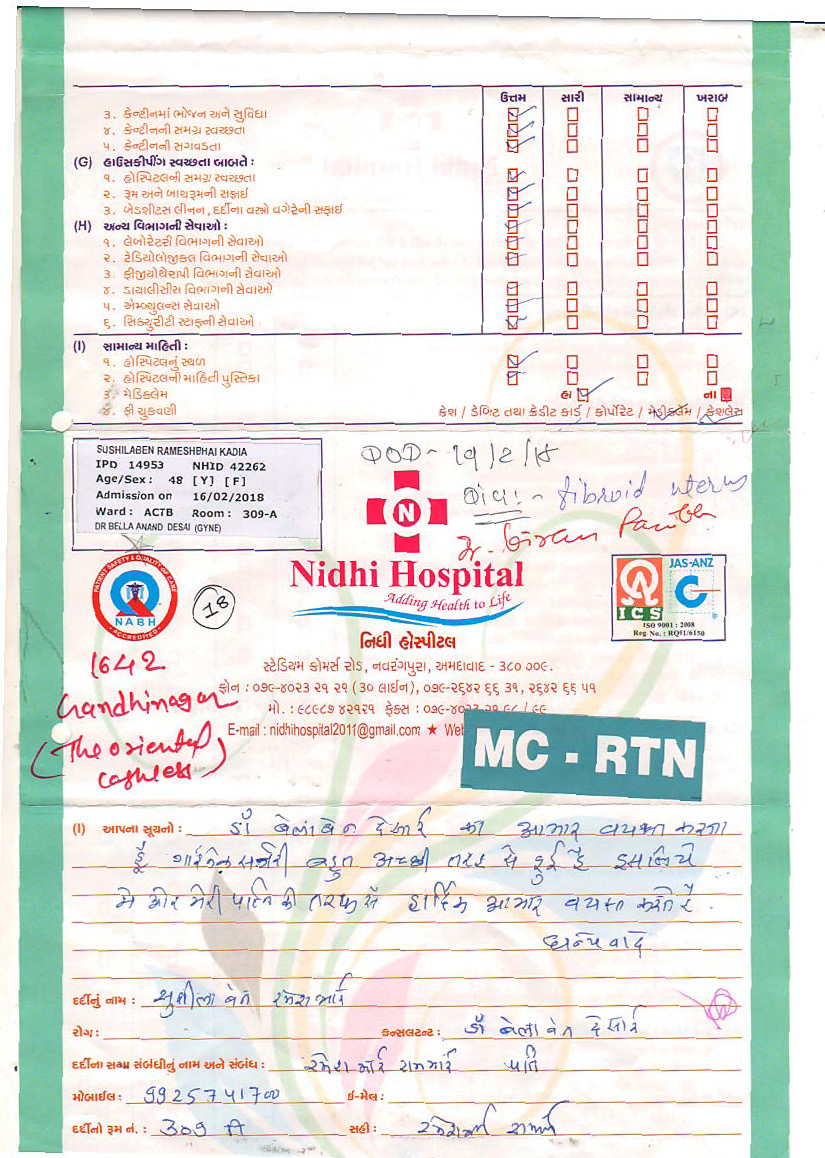 ઉત્તમ સારી સામાન્ય ખરાબ
૩. કેન્ટીનમાં ભોજન અને સુવિધા
૪. કેન્ટીનની સમગ્ર સ્વચ્છતા
૫. કેન્ટીનની સગવડતા
(G) હાઉસકીપીંગ સ્વચ્છતા બાબતે :
૧. હોસ્પિટલની સમગ્ર સ્વચ્છતા
૨. રૂમ અને બાથરૂમની સફાઈ
૩. બેડશીટસ લીનન, દર્દીના વસ્ત્રો વગેરેની સફાઈ
(H) અન્ય વિભાગની સેવાઓ :
૧. લેબોરેટરી વિભાગની સેવાઓ
૨. રેડિયોલોજીકલ વિભાગની સેવાઓ
૩. ફીજીયોથેરાપી વિભાગની સેવાઓ
૪. ડાયાલીસીસ વિભાગની સેવાઓ
૫. એમ્બ્યુલન્સ સેવાઓ
૬. સિક્યુરીટી સ્ટાફની સેવાઓ
(I) સામાન્ય માહિતી :
૧. હોસ્પિટલનું સ્થળ
૨. હોસ્પિટલની માહિતી પુસ્તિકા
૩. મેડિક્લેમ હા ના
૪. ફી ચુકવણી કેશ / ડેબિટ તથા ક્રેડીટ કાર્ડ / કોર્પોરેટ / મેડીક્લેમ / કેશલેસ
SUSHILABEN RAMESHBHAI KADIA
IPD 14953 NHID 42262
Age/Sex: 48 [Y] [F]
Admission on 16/02/2018
Ward: ACTB Room: 309-A
DR BELLA ANAND DESAI (GYNE)
DOD- 19/2/18
fibroid uterus
Dr.
N
Nidhi Hospital
Adding Health to Life
PATIENT SAFETY & QUALITY OF CARE
NABH
ACCREDITED
18
JAS-ANZ
ICS
ISO 9001 : 2008
Reg No. : RQ91/6150
નિધી હોસ્પીટલ
સ્ટેડિયમ કોમર્સ રોડ, નવરંગપુરા, અમદાવાદ - ૩૮૦ ૦૦૯.
ફોન : ૦૭૯-૪૦૨૩ ૨૧ ૨૧ (૩૦ લાઈન), ૦૭૯-૨૬૪૨ ૬૬ ૩૧, ૨૬૪૨ ૬૬ ૫૧
મો. : ૯૮૯૮૭ ૪૨૧૨૧ ફેક્સ : ૦૭૯-૪૦૨૩ ૨૧ ૯૮ / ૯૯
E-mail : nidhihospital2011@gmail.com ★ Web
1642
Gandhinagar
(The oriental
cashless)
MC - RTN
(I) આપના સૂચનો : ડૉ બેલાબેન દેસાઈ का આભાર વ્યક્ત કરતા
હૂઁ સર્જરી બહુત અચ્છી તરહ સે હુઈ હૈ ઇસલિયે
મે ઓર મેરી પત્નિ કી તરફ સે હાર્દિક આભાર વ્યક્ત કરતે હૈ.
ધન્યવાદ
દર્દીનું નામ : સુશીલા બેન રમેશભાઈ
રોગ : કન્સલટન્ટ : ડૉ બેલા બેન દેસાઈ
દર્દીના સગા સંબંધીનું નામ અને સંબંધ : રમેશભાઈ રામભાઈ પતિ
મોબાઈલ : 9925741700 ઈ-મેલ :
દર્દીનો રૂમ નં. : 309 A સહી :